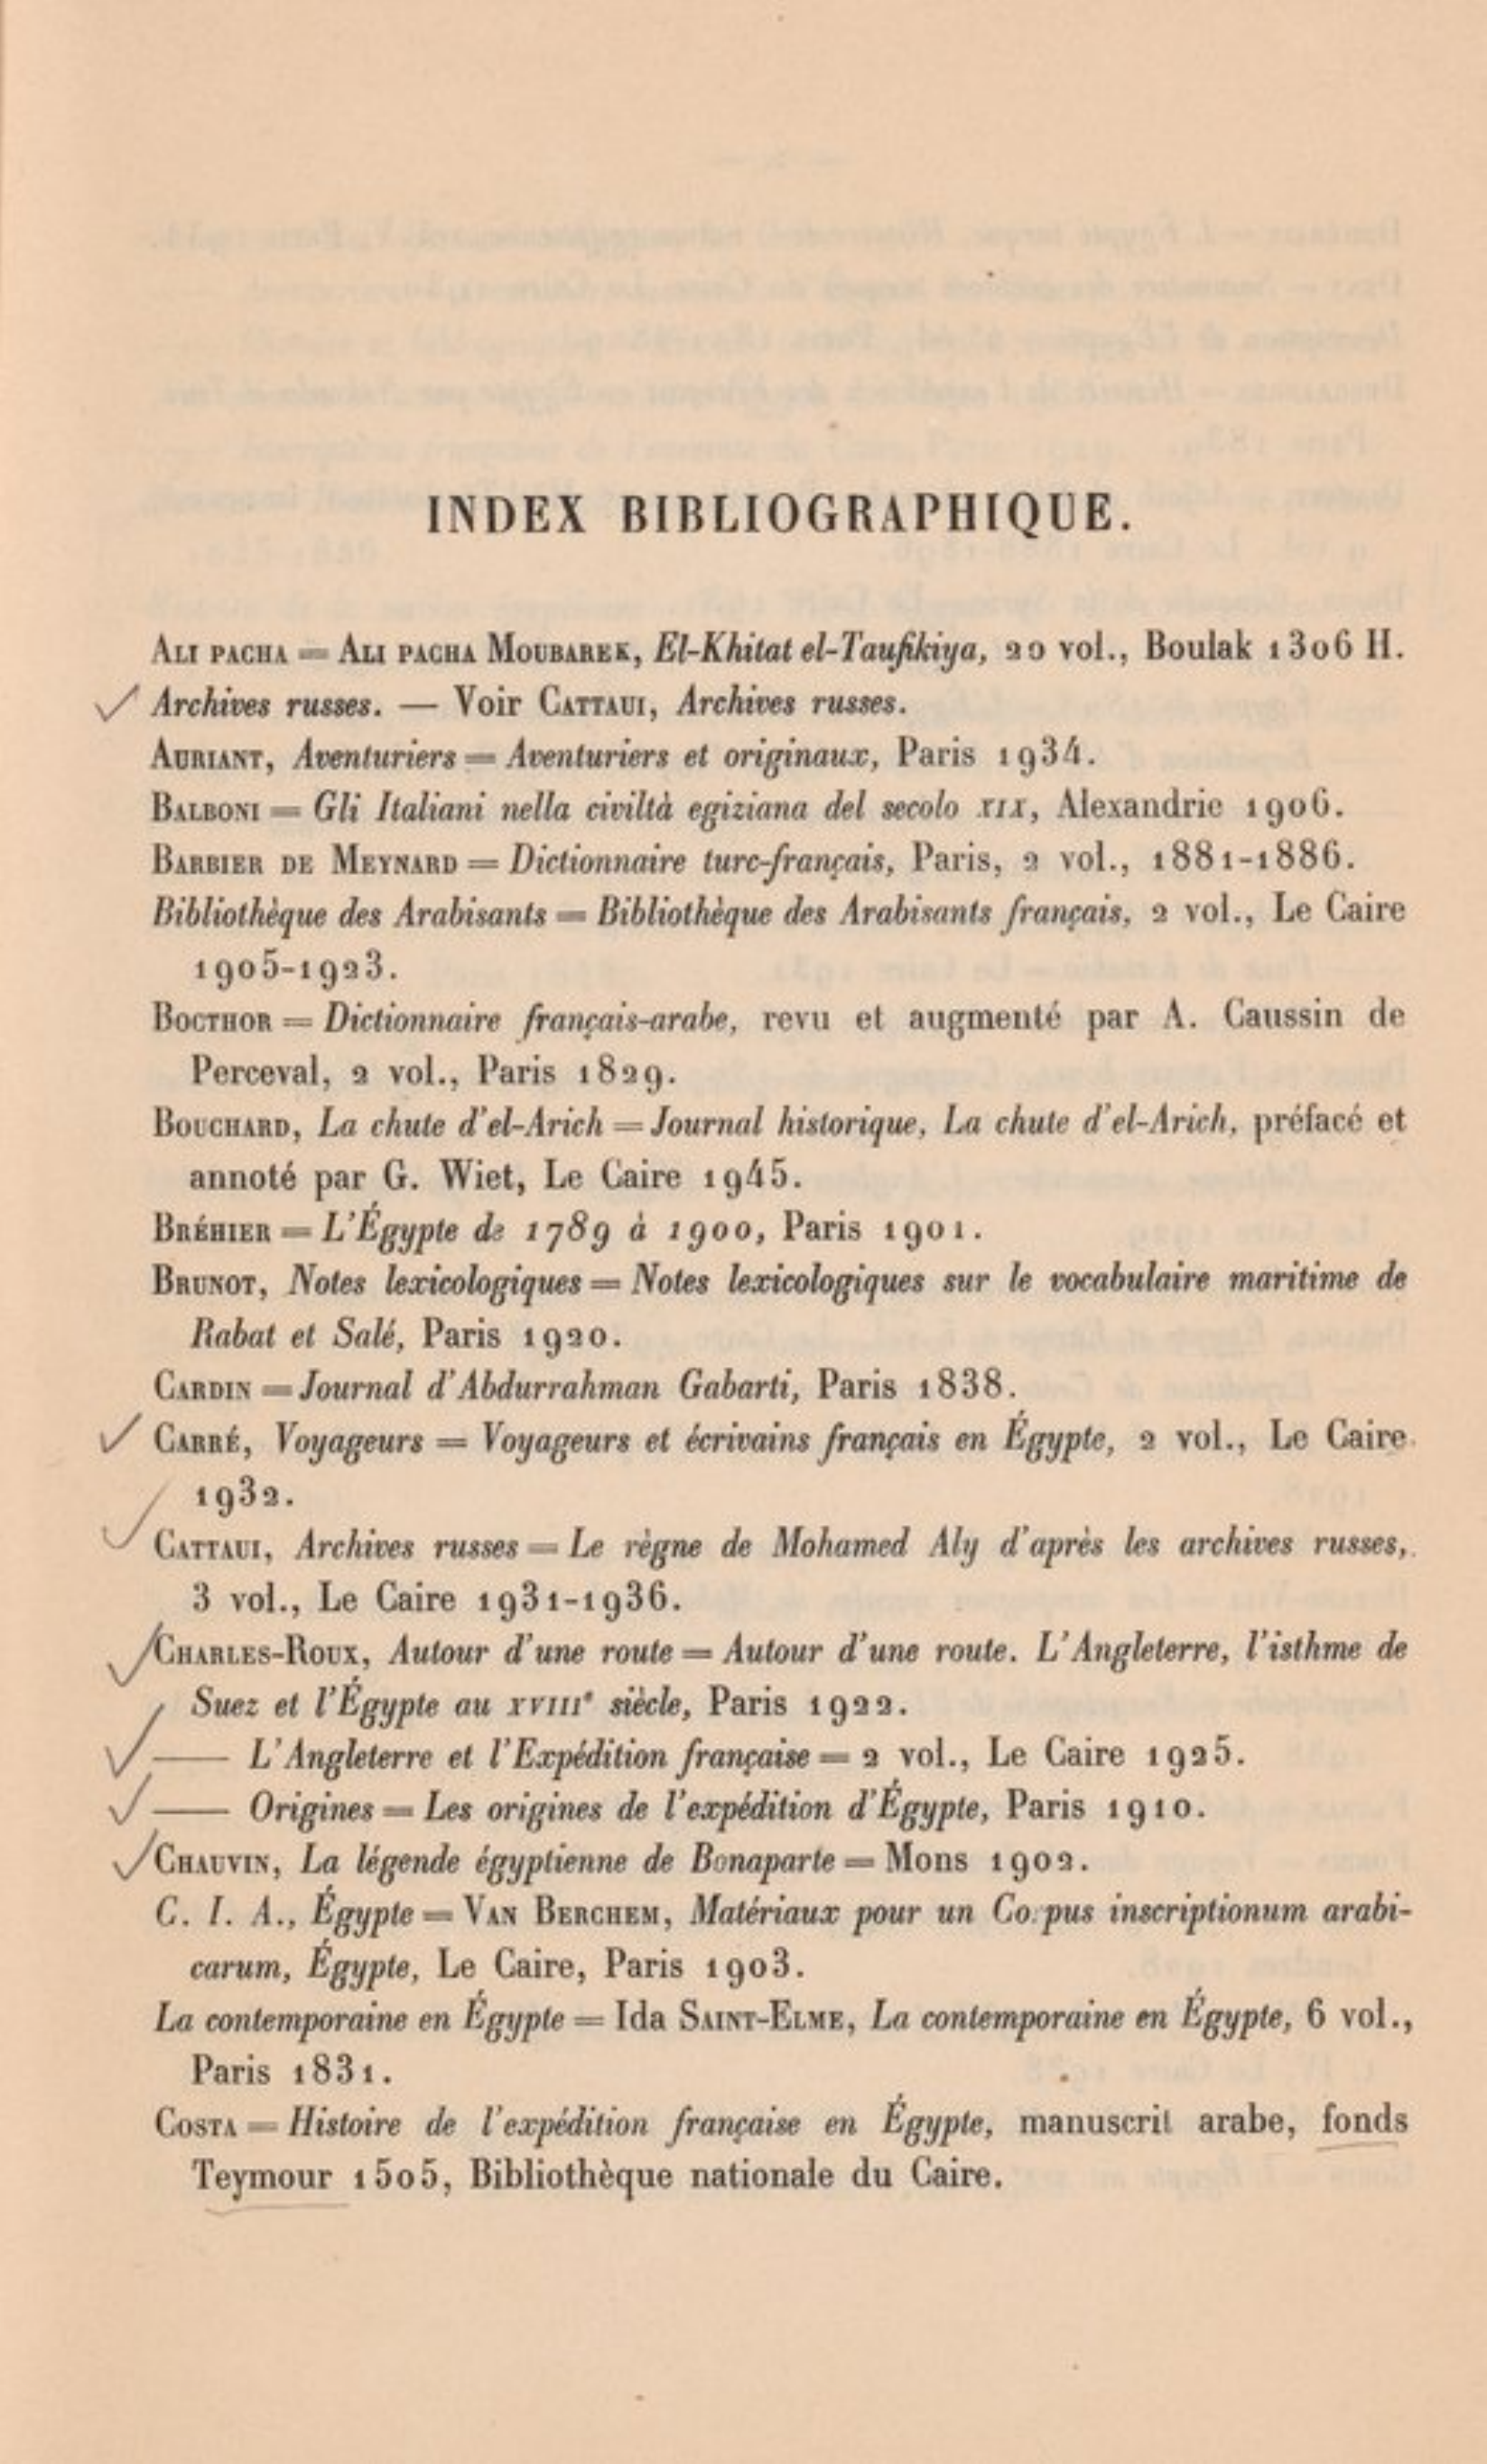 INDEX BIBLIOGRAPHIQUE.
ALI PACHA = ALI PACHA MOUBAREK, El-Khitat el-Taufikiya, 20 vol., Boulak 1306 H.
Archives russes. — Voir CATTAUI, Archives russes.
AURIANT, Aventuriers = Aventuriers et originaux, Paris 1934.
BALBONI = Gli Italiani nella civiltà egiziana del secolo XIX, Alexandrie 1906.
BARBIER DE MEYNARD = Dictionnaire turc-français, Paris, 2 vol., 1881-1886.
Bibliothèque des Arabisants = Bibliothèque des Arabisants français, 2 vol., Le Caire
1905-1923.
BOCTHOR = Dictionnaire français-arabe, revu et augmenté par A. Caussin de
Perceval, 2 vol., Paris 1829.
BOUCHARD, La chute d'el-Arich = Journal historique, La chute d'el-Arich, préfacé et
annoté par G. Wiet, Le Caire 1945.
BRÉHIER = L'Égypte de 1789 à 1900, Paris 1901.
BRUNOT, Notes lexicologiques = Notes lexicologiques sur le vocabulaire maritime de
Rabat et Salé, Paris 1920.
CARDIN = Journal d'Abdurrahman Gabarti, Paris 1838.
CARRÉ, Voyageurs = Voyageurs et écrivains français en Égypte, 2 vol., Le Caire
1932.
CATTAUI, Archives russes = Le règne de Mohamed Aly d'après les archives russes,
3 vol., Le Caire 1931-1936.
CHARLES-ROUX, Autour d'une route = Autour d'une route. L'Angleterre, l'isthme de
Suez et l'Égypte au XVIIIe siècle, Paris 1922.
—— L'Angleterre et l'Expédition française = 2 vol., Le Caire 1925.
—— Origines = Les origines de l'expédition d'Égypte, Paris 1910.
CHAUVIN, La légende égyptienne de Bonaparte = Mons 1902.
C. I. A., Égypte = VAN BERCHEM, Matériaux pour un Corpus inscriptionum arabi-
carum, Égypte, Le Caire, Paris 1903.
La contemporaine en Égypte = Ida SAINT-ELME, La contemporaine en Égypte, 6 vol.,
Paris 1831.
COSTA = Histoire de l'expédition française en Égypte, manuscrit arabe, fonds
Teymour 1505, Bibliothèque nationale du Caire.